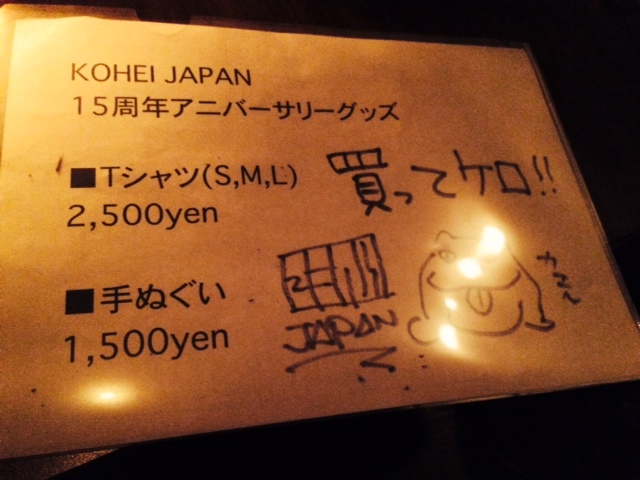 KOHEI JAPAN
15周年アニバーサリーグッズ
■Tシャツ(S,M,L)
2,500yen
買ってケロ!!
■手ぬぐい
1,500yen
JAPAN